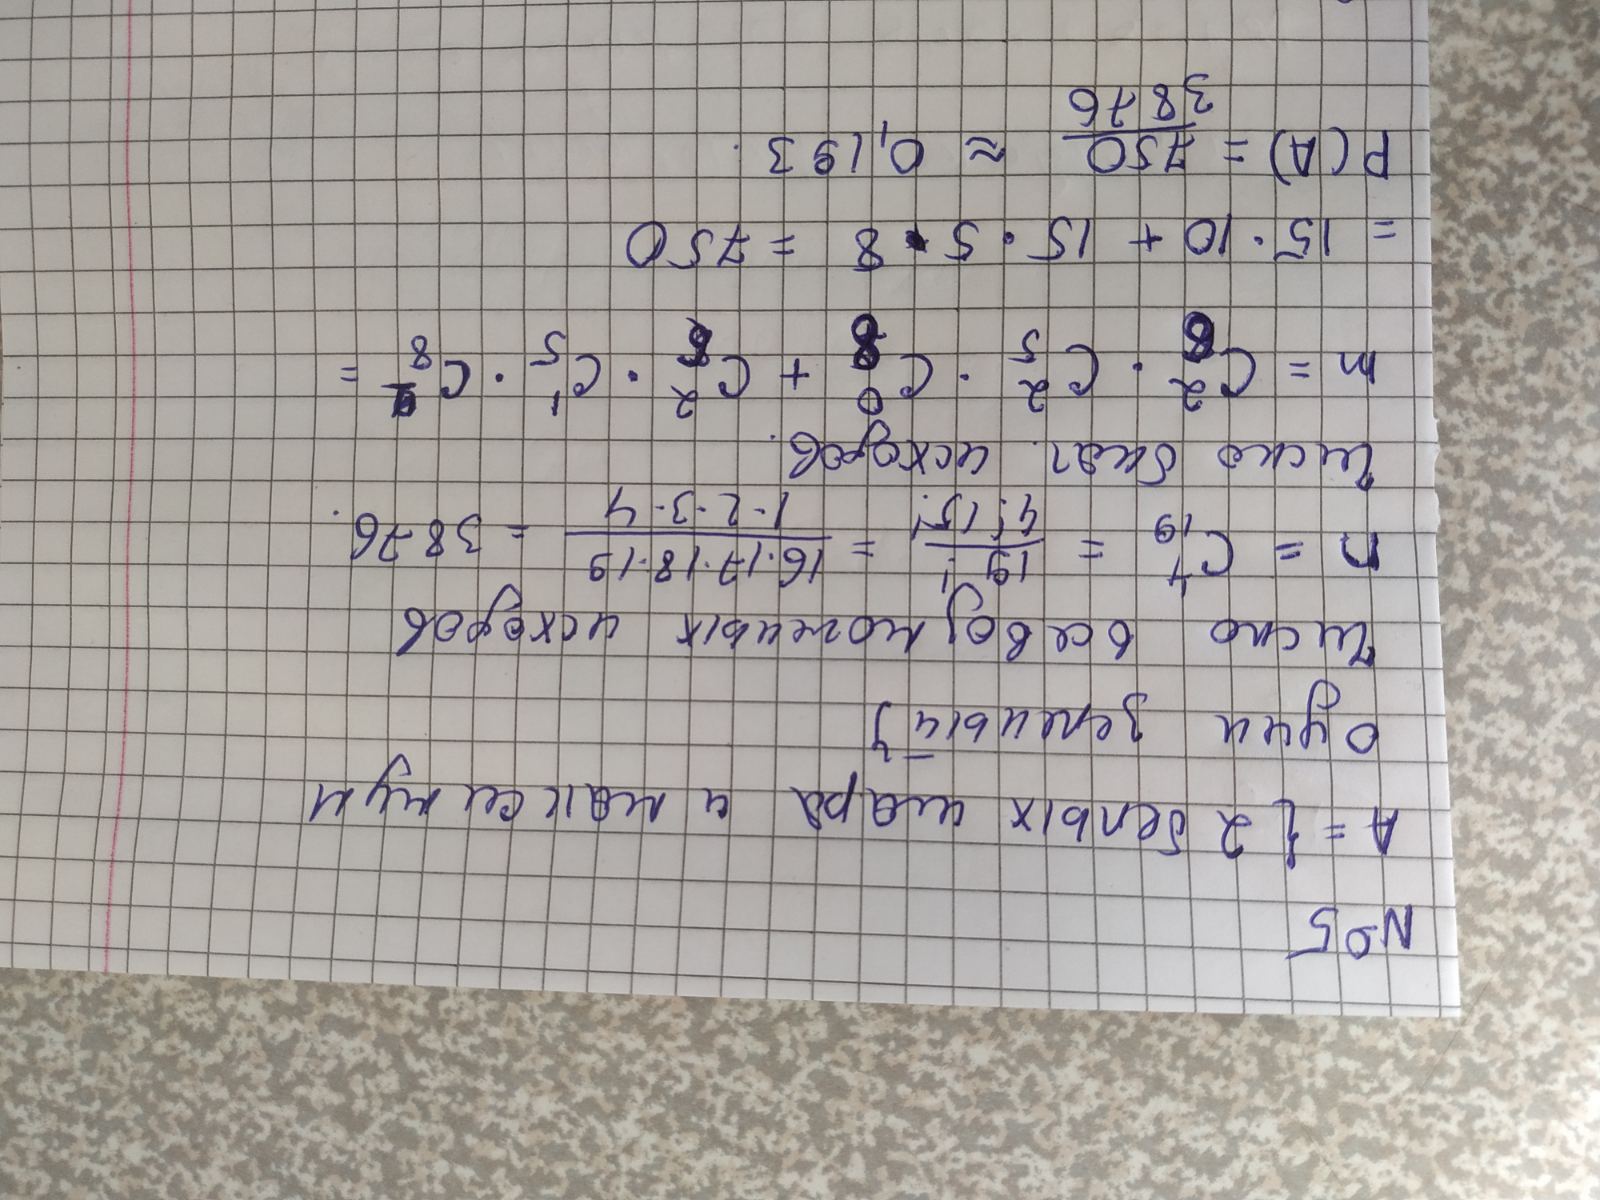 №5
A = { 2 белых шара и максимум
один зеленый }
Число всевозможных исходов
n = C_19^4 = 19! / 4! 15! = 16·17·18·19 / 1·2·3·4 = 3876.
Число благ. исходов.
m = C_6^2 · C_5^2 · C_8^0 + C_6^2 · C_5^1 · C_8^1 =
= 15·10 + 15·5·8 = 750
P(A) = 750 / 3876 ≈ 0,193.